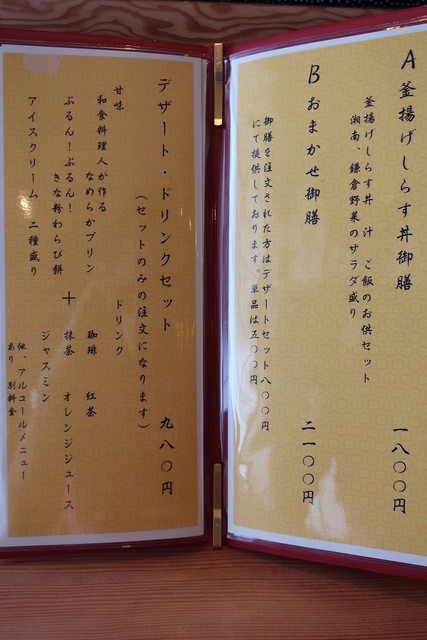 A 釜揚げしらす丼御膳 一八〇〇円
釜揚げしらす丼 汁 ご飯のお供セット
湘南、鎌倉野菜のサラダ盛り
B おまかせ御膳 二一〇〇円
御膳を注文された方はデザートセット八〇〇円
にて提供しております。単品は五〇〇円
デザート・ドリンクセット 九八〇円
(セットのみの注文になります)
甘味
和食料理人が作る
なめらかプリン
ぷるん！ぷるん！
きな粉わらび餅
アイスクリーム 二種盛り
+
ドリンク
珈琲 紅茶
抹茶 オレンジジュース
ジャスミン
他、アルコールメニュー
あり 別料金